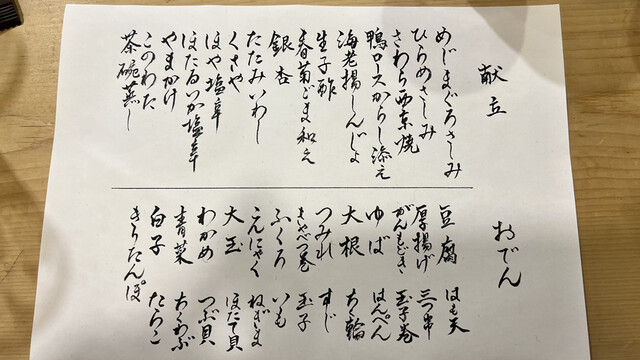 献立
めじまぐろさしみ
ひらめさしみ
さわら西京焼
鴨ロースからし添え
海老揚しんじょ
生子酢
春菊ごま和え
銀杏
たたみいわし
くさや
ほや塩辛
ほたるいか塩辛
やまかけ
このわた
茶碗蒸し
おでん
豆腐
厚揚げ
がんもどき
ゆば
大根
つみれ
きゃべつ巻
ふくろ
こんにゃく
大玉
わかめ
青菜
白子
きりたんぽ
はも天
三つ串
玉子巻
はんぺん
ちく輪
すじ
玉子
いも
ねぎま
ほたて貝
つぶ貝
ちくわぶ
たらこ